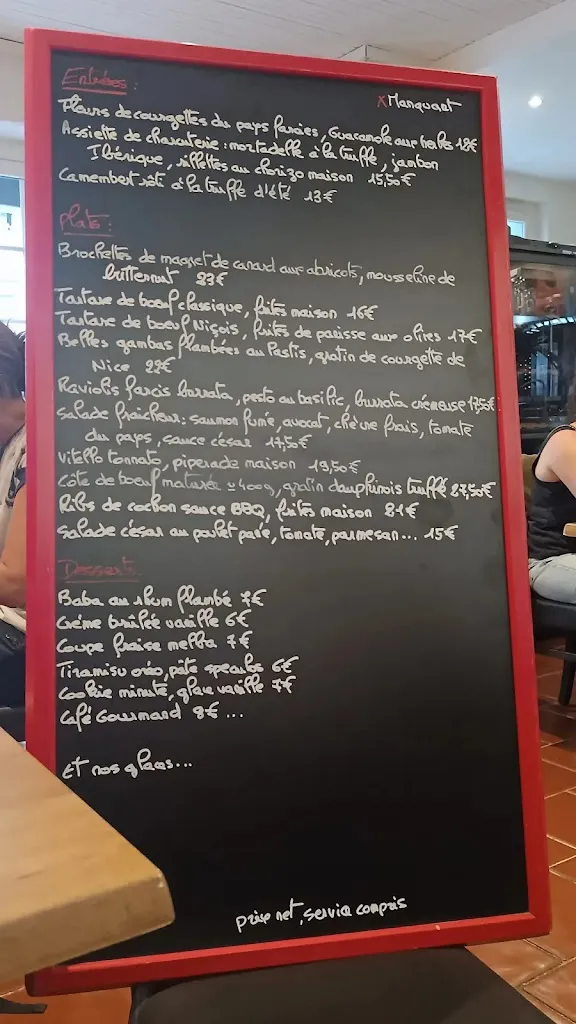 Entrées :
x Manquant
Fleurs de courgettes du pays farcies, Guacamole aux herbes 18€
Assiette de charcuterie : mortadelle à la truffe, jambon
Ibérique, rillettes au chorizo maison 15,50€
Camembert rôti à la truffe d'été 13€
Plats :
Brochettes de magret de canard aux abricots, mousseline de
butternut 23€
Tartare de boeuf classique, frites maison 16€
Tartare de boeuf Niçois, frites de panisse aux olives 17€
Belles gambas flambées au Pastis, gratin de courgette de
Nice 22€
Raviolis farcis burrata, pesto au basilic, burrata crémeuse 17,50€
Salade fraîcheur : saumon fumé, avocat, chèvre frais, tomate
du pays, sauce césar 17,50€
Vitello tonnato, piperade maison 19,50€
Côte de boeuf maturée ≃ 400g, gratin dauphinois truffé 27,50€
Ribs de cochon sauce BBQ, frites maison 21€
Salade césar au poulet pané, tomate, parmesan... 15€
Desserts
Baba au rhum flambé 7€
Crème brûlée vanille 6€
Coupe fraise melba 7€
Tiramisu oréo, pâte speculos 6€
Cookie minute, glace vanille 7€
Café Gourmand 8€ ...
Et nos glaces...
prix net, service compris